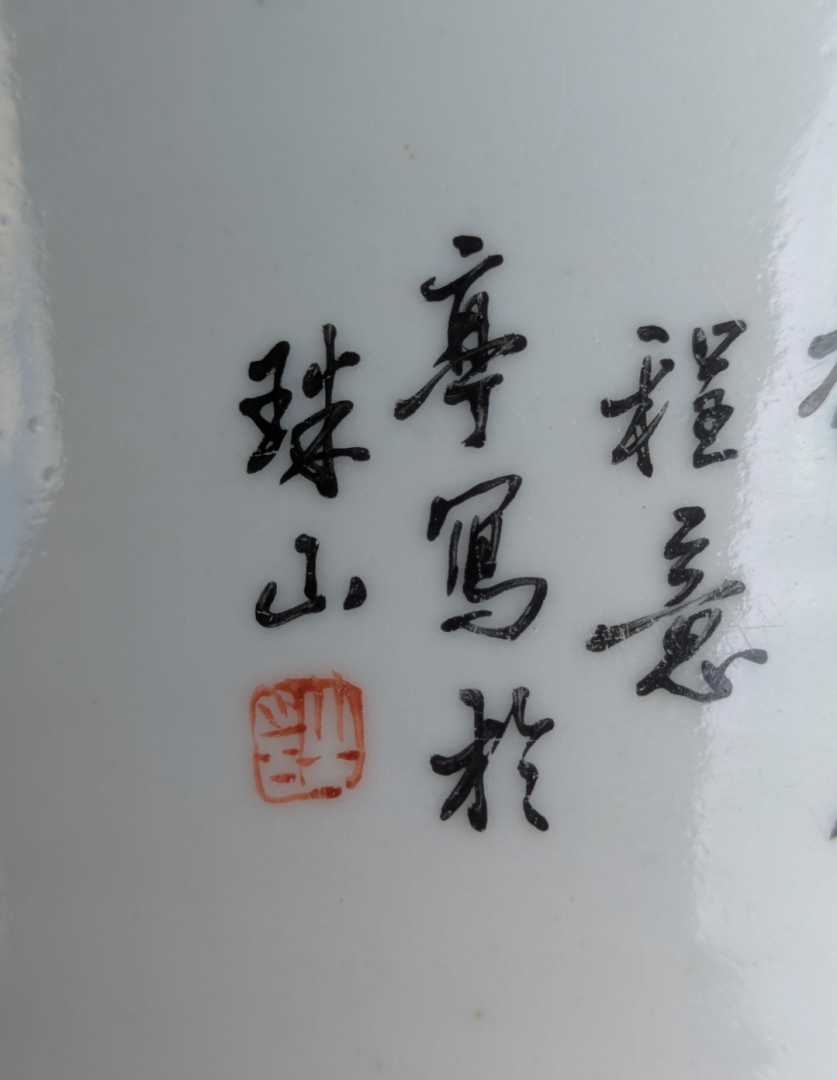 程意
亭寫於
珠山